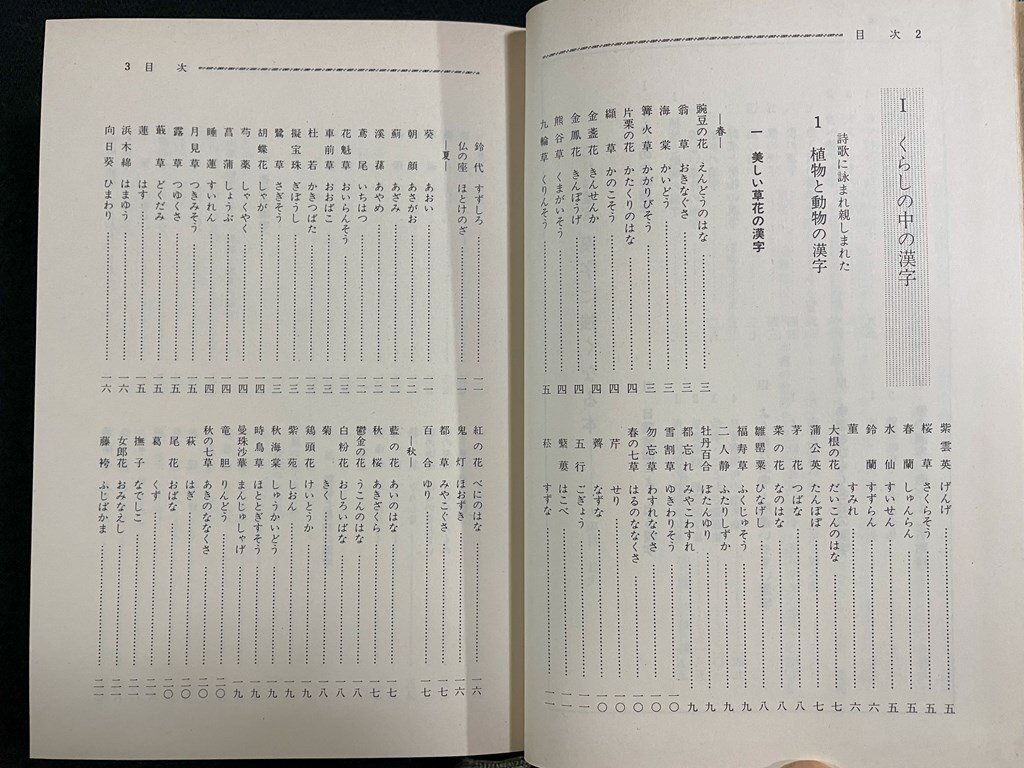 目次 2
Ⅰ くらしの中の漢字
詩歌に詠まれ親しまれた
1 植物と動物の漢字
一 美しい草花の漢字
―春―
豌豆の花 えんどうのはな 三
翁草 おきなぐさ 三
海棠 かいどう 三
篝火草 かがりびそう 三
片栗の花 かたくりのはな 四
纈草 かのこそう 四
金盞花 きんせんか 四
金鳳花 きんぽうげ 四
熊谷草 くまがいそう 四
九輪草 くりんそう 五
紫雲英 げんげ 五
桜草 さくらそう 五
春蘭 しゅんらん 五
水仙 すいせん 五
鈴蘭 すずらん 六
菫 すみれ 六
大根の花 だいこんのはな 七
蒲公英 たんぽぽ 七
茅花 つばな 八
菜の花 なのはな 八
雛罌粟 ひなげし 八
福寿草 ふくじゅそう 九
二人静 ふたりしずか 九
牡丹百合 ぼたんゆり 九
都忘れ みやこわすれ 九
雪割草 ゆきわりそう 一〇
勿忘草 わすれなぐさ 一〇
春の七草 はるのななくさ 一〇
芹 せり 一〇
薺 なずな 一〇
五行 ごぎょう 一一
繁蔞 はこべ 一一
菘 すずな 一一
3 目次
鈴代 すずしろ 一一
仏の座 ほとけのざ 一一
―夏―
葵 あおい 一二
朝顔 あさがお 一二
薊 あざみ 一二
渓蓀 あやめ 一二
鳶尾 いちはつ 一二
花魁草 おいらんそう 一三
車前草 おおばこ 一三
杜若 かきつばた 一三
擬宝珠 ぎぼうし 一三
鷺草 さぎそう 一三
胡蝶花 しゃが 一四
芍薬 しゃくやく 一四
菖蒲 しょうぶ 一四
睡蓮 すいれん 一四
月見草 つきみそう 一五
露草 つゆくさ 一五
蕺草 どくだみ 一五
蓮 はす 一五
浜木綿 はまゆう 一六
向日葵 ひまわり 一六
紅の花 べにのはな 一六
鬼灯 ほおずき 一六
都草 みやこぐさ 一七
百合 ゆり 一七
―秋―
藍の花 あいのはな 一七
秋桜 あきざくら 一七
鬱金の花 うこんのはな 一八
白粉花 おしろいばな 一八
菊 きく 一八
鶏頭花 けいとうか 一九
紫苑 しおん 一九
秋海棠 しゅうかいどう 一九
時鳥草 ほととぎすそう 一九
曼珠沙華 まんじゅしゃげ 一九
竜胆 りんどう 二〇
秋の七草 あきのななくさ 二〇
萩 はぎ 二〇
尾花 おばな 二〇
葛 くず 二〇
撫子 なでしこ 二一
女郎花 おみなえし 二一
藤袴 ふじばかま 二一